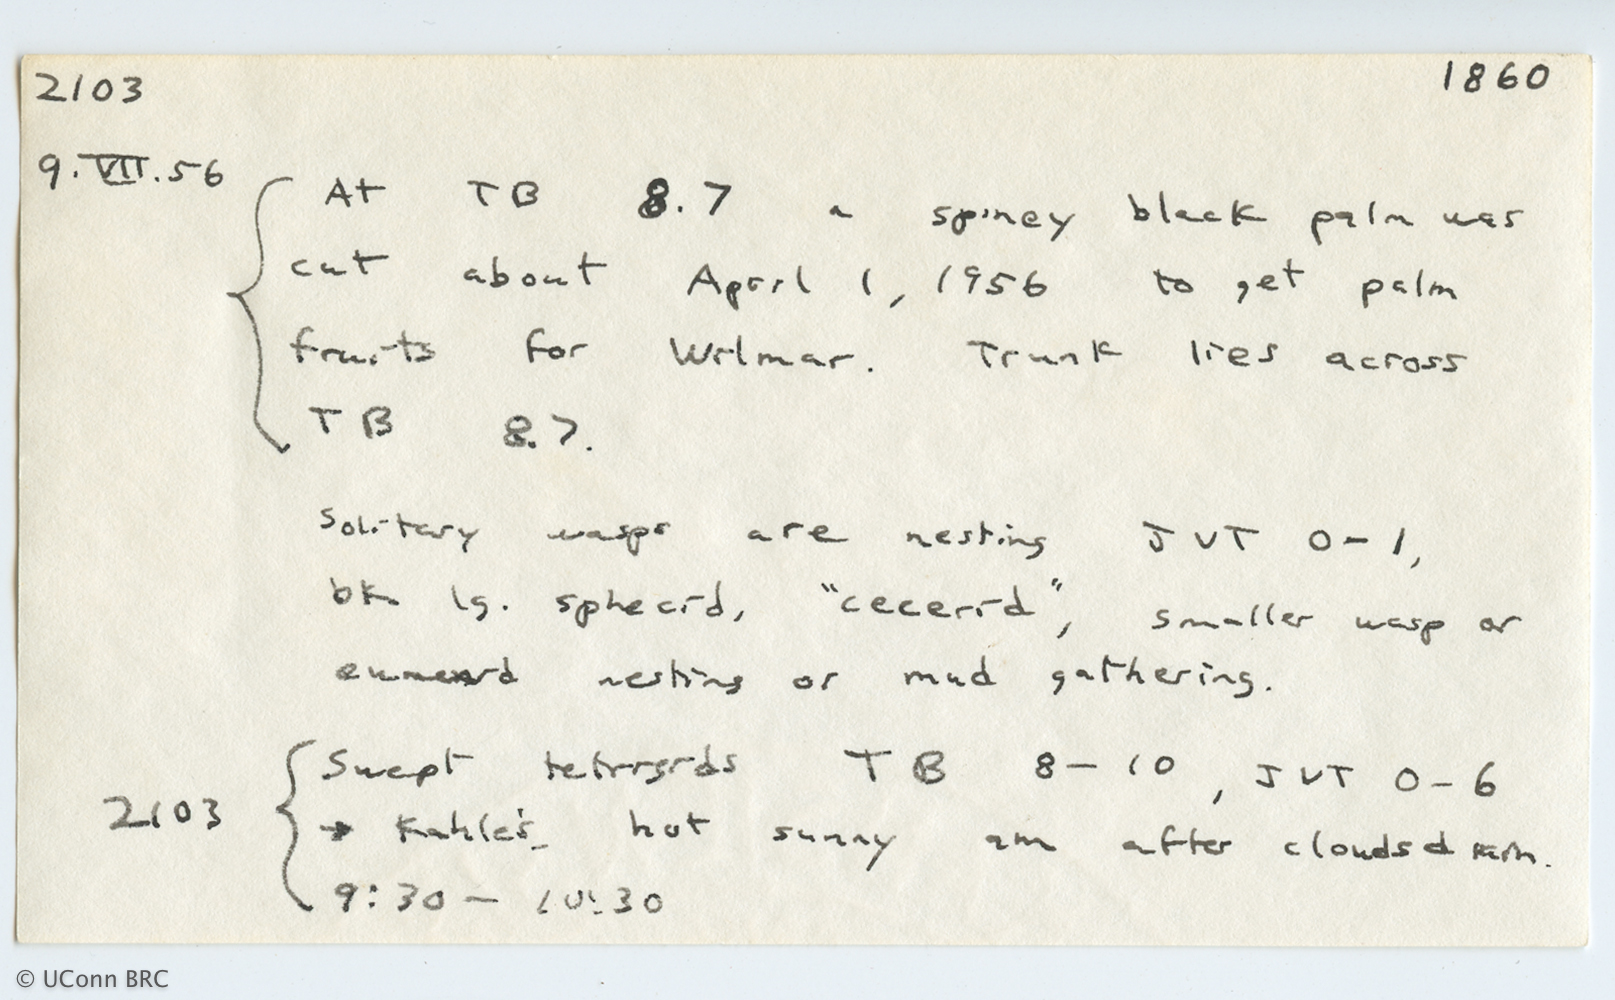 2103 1860
9.VII.56
At TB 8.7 a spiney black palm was
cut about April 1, 1956 to get palm
fruits for Wilmar. Trunk lies across
TB 8.7.
Solitary wasps are nesting JVT 0-1,
bk lg. sphecid, "cecerid", smaller wasp or
nesting or mud gathering.
Swept tetrigids TB 8-10, JVT 0-6
2103 → Kahle's hot sunny am after clouds & rain.
9:30 - 10:30
© UConn BRC